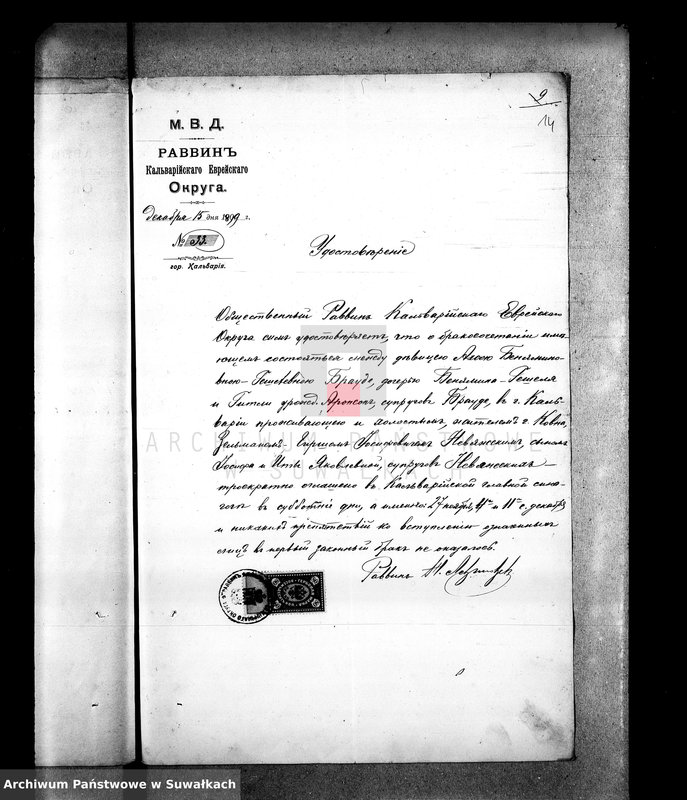 9
14
М. В. Д.
РАВВИНЪ
Кальварійскаго Еврейскаго
Округа.
Декабря 15 дня 1899 г.
№ 33.
гор. Кальварія.
Удостовѣреніе
Общественный Раввинъ Кальварійскаго Еврейскаго
Округа симъ удостовѣряетъ, что о бракосочетаніи имѣ-
ющемъ состояться между дѣвицею Беньямино-
вною-Гешелевною Браудо, дочерью Беньямина-Гешеля
и Гитли урожд. Аронсонъ, супруговъ Браудо, въ г. Каль-
варіи проживающею и холостымъ, жителемъ г. Ковна,
Зельманомъ-Гиршомъ Іосифовичемъ Невяжскимъ, сыномъ
Іосифа и Яковлевной, супруговъ Невяжскихъ —
троекратно оглашено въ Кальварійской главной сина-
гогѣ въ субботніе дни, а именно: 27 ноября, 4го и 11го с. декабря
и никакихъ препятствій ко вступленію означенныхъ
лицъ въ первый законный бракъ не оказалось.
Раввинъ
ARCHIWUM PAŃSTWOWE
W SUWAŁKACH
Archiwum Państwowe w Suwałkach